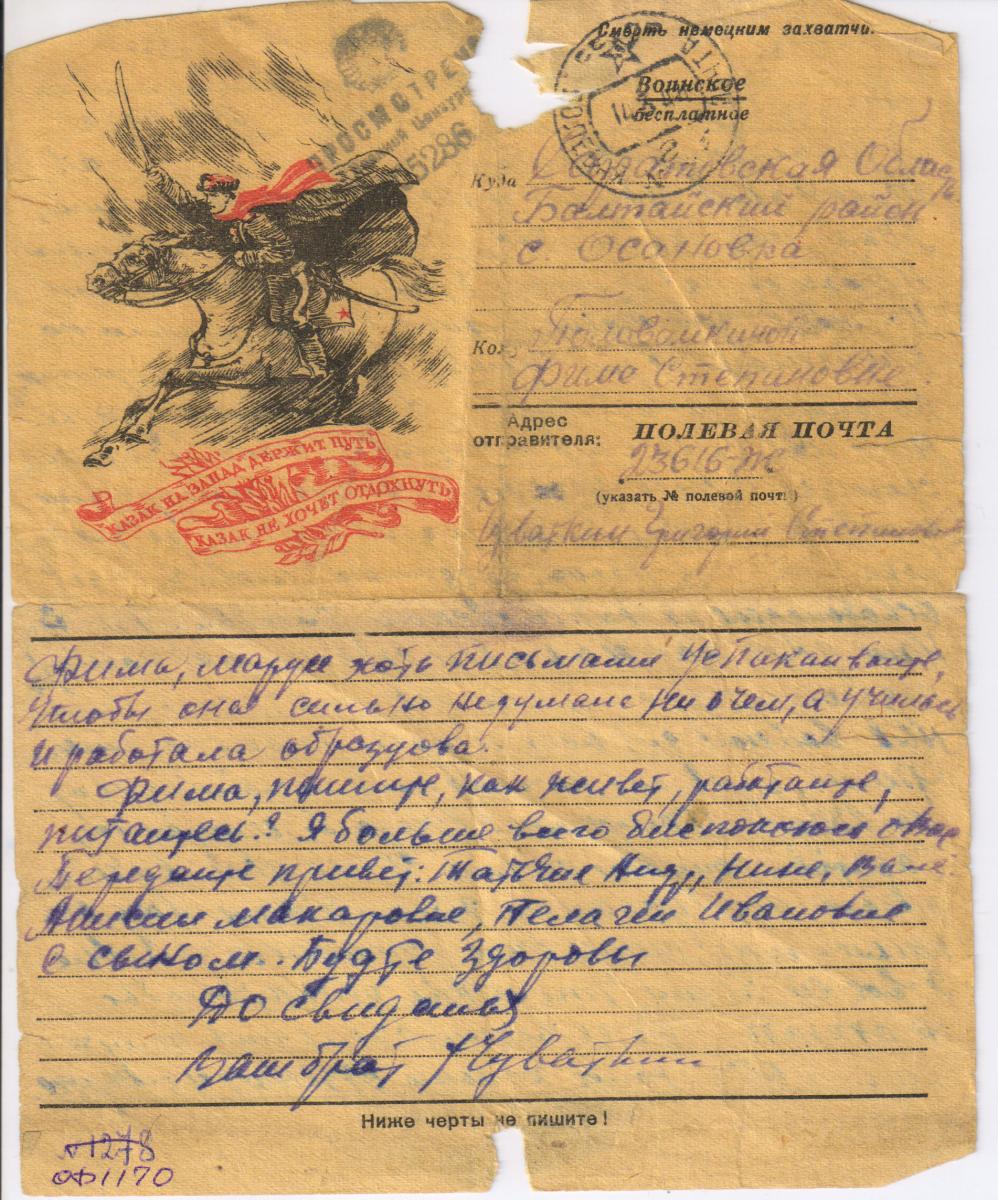 Смерть немецким захватчи
Воинское
бесплатное
ПРОСМОТРЕНО
05286
Куда Саратовская Область
Балтайский район
с. Осановка
Кому
Фиме Степановне.
Адрес
отправителя:
ПОЛЕВАЯ ПОЧТА
23616-Ж
(указать № полевой почты)
Чуваткин Григорий Степанович
КАЗАК НА ЗАПАД ДЕРЖИТ ПУТЬ,
КАЗАК НЕ ХОЧЕТ ОТДОХНУТЬ
Фима, Марусю хоть письмами успакаиваще,
Чтобы она сильно недумала ни о чем, а училась
и работала образцова.
Фима, пишите, как живет, работаще,
питащесь? Я больше всего беспокоюсь о Вас
Передаще привет: Нине, Вале
Анисии Макаровне, Пелагеи Ивановне
с сыном. Будте здоровы
До свиданья
Ваш брат Чуваткин
Ниже черты не пишите!
1278
ОФ1170